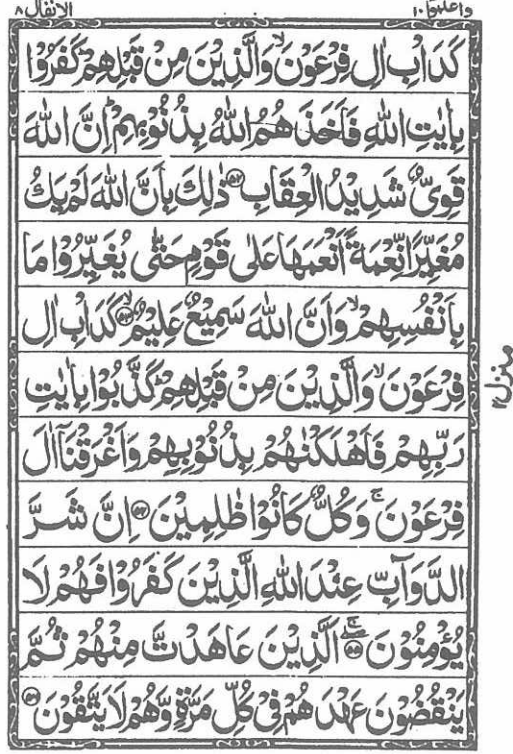 واعلموا ١٠
الانفال ٨
كَدَاْبِ اٰلِ فِرْعَوْنَ ۙ وَالَّذِيْنَ مِنْ قَبْلِهِمْ ؕ كَفَرُوْا
بِاٰيٰتِ اللّٰهِ فَاَخَذَهُمُ اللّٰهُ بِذُنُوْبِهِمْ ؕ اِنَّ اللّٰهَ
قَوِىٌّ شَدِيْدُ الْعِقَابِ ﴿۵۲﴾ ذٰلِكَ بِاَنَّ اللّٰهَ لَمْ يَكُ
مُغَيِّرًا نِّعْمَةً اَنْعَمَهَا عَلٰى قَوْمٍ حَتّٰى يُغَيِّرُوْا مَا
بِاَنْفُسِهِمْ ۙ وَاَنَّ اللّٰهَ سَمِيْعٌ عَلِيْمٌ ﴿۵۳﴾ ۙ كَدَاْبِ اٰلِ
فِرْعَوْنَ ۙ وَالَّذِيْنَ مِنْ قَبْلِهِمْ ؕ كَذَّبُوْا بِاٰيٰتِ
رَبِّهِمْ فَاَهْلَكْنٰهُمْ بِذُنُوْبِهِمْ وَاَغْرَقْنَاۤ اٰلَ
فِرْعَوْنَ ۚ وَكُلٌّ كَانُوْا ظٰلِمِيْنَ ﴿۵۴﴾ اِنَّ شَرَّ
الدَّوَآبِّ عِنْدَ اللّٰهِ الَّذِيْنَ كَفَرُوْا فَهُمْ لَا
يُؤْمِنُوْنَ ﴿۵۵﴾ ۚ اَلَّذِيْنَ عَاهَدْتَّ مِنْهُمْ ثُمَّ
يَنْقُضُوْنَ عَهْدَهُمْ فِىْ كُلِّ مَرَّةٍ وَّهُمْ لَا يَتَّقُوْنَ ﴿۵۶﴾
منزل ٢